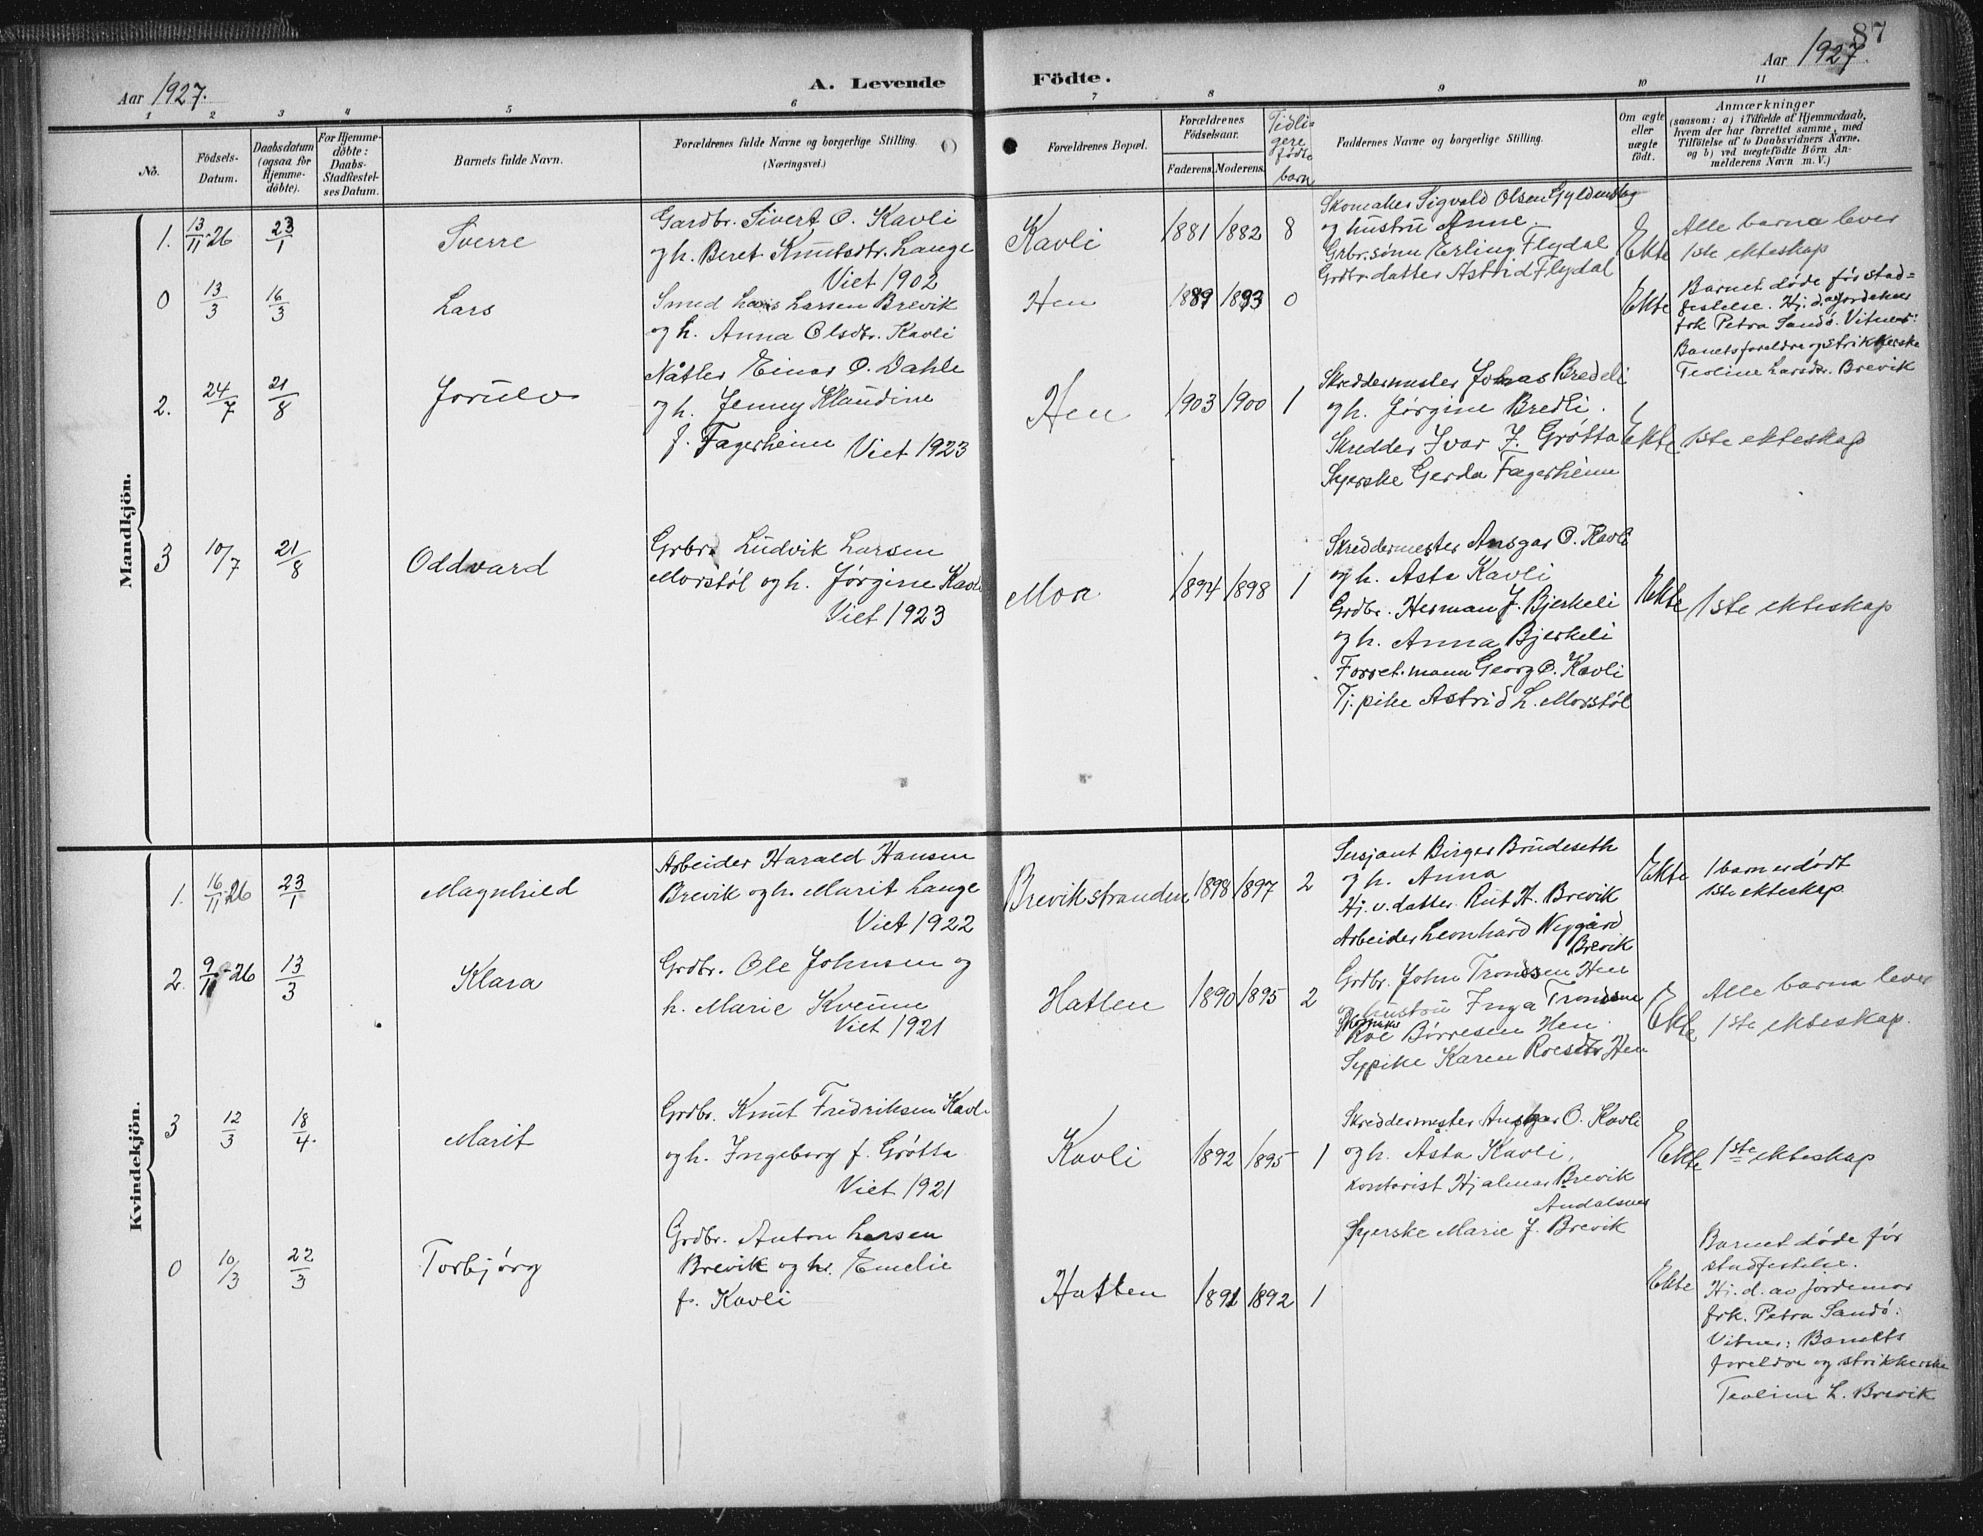 87
Aar 1927.
A. Levende Födte.
Aar 1927.
1 2 3 4 5 6 7 8 9 10 11
No.
Födsels-Datum.
Daabsdatum (ogsaa for Hjemme-döbte).
For Hjemme-döbte: Daabs-Stadfæstel-ses Datum.
Barnets fulde Navn.
Forældrenes fulde Navne og borgerlige Stilling.
(Næringsvei.)
Forældrenes Bopæl.
Forældrenes Födselsaar.
Faderens. Moderens.
Tidligere fødte barn
Faddernes Navne og borgerlige Stilling.
Om ægte eller uægte födt.
Anmærkninger
(saasom: a) i Tilfælde af Hjemmedaab, hvem der har forrettet samme, med Tilföielse af to Daabsvidners Navne, og b) ved uægtefödte Börn An-melderens Navn m. V.)
Mandkjön.
1. 13/11-26 23/1 Sverre
Gardbr. Sivert O. Kavli
og h. Beret Knutsdtr. Lange
Viet 1902
Kavli 1881 1882 8
Skomaker Sigvald Olsen Gyldenskog
og hustru Anne.
Grbr.sønn Erling Flydal
Grdbr.datter Astrid Flydal
Ekte
Alle barna lever
1ste ekteskap
0 13/3 16/3 Lars
Smed Lars Larsen Brevik
og h. Anna Olsdtr. Kavli
Hen 1889 1893 0
Ekte
Barnet døde før stad=
festelse. Hj.d. av jordemor
frk Petra Sandö. Vitner:
Banets foreldre og strikkerske
Teoline Larsdtr. Brevik
2. 24/7 21/8 Jorulv
Nåtler Einar O. Dahle
og h. Jenny Klaudine
f. Fagerheim Viet 1923
Hen 1903 1900 1
Skreddermester Johas Bredeli
og h. Jørgine Bredli.
Skredder Ivar J. Grøtta
Syerske Gerda Fagerheim
Ekte 1ste ekteskap
3 10/7 21/8 Oddvard
Grbr. Ludvik Larsen
Morstøl og h. Jørgine Kavli
Viet 1923
Moa 1894 1898 1
Skreddermester Ansgar O. Kavli
og h. Asta Kavli
Grdbr. Herman J. Bjerkeli
og h. Anna Bjerkeli
Forret.mann Georg O. Kavli
Tj. pike Astrid L. Morstøl
Ekte 1ste ekteskap
Kvindekjön.
1. 16/11-26 23/1 Magnhild
Arbeider Harald Hansen
Brevik og h. Marit Lange
Viet 1922
Brevikstranden 1898 1897 2
Sersjant Birger Brudeseth
og h. Anna
Hj.v. datter Rut H. Brevik
Arbeider Leonhard Nygård
Brevik
Ekte
1 barn er dödt
1ste ekteskap.
2. 9/11-26 13/3 Klara
Grdbr. Ole Johnsen og
h. Marie Kvemme
Viet 1921
Hatlen 1890 1895 2
Grdbr. John Tronssen Hen
og hustru Inga Tronssen
Roe Børresen Hen.
Sypike Karen Roesdtr Hen
Ekte
Alle barna lever
1ste ekteskap.
3 12/3 18/4. Marit
Grdbr. Knut Fredriksen Kavli
og h. Ingeborg f. Grøtta
Viet 1921
Kavli 1892 1895 1
Skreddermester Ansgar O. Kavli
og h. Åsta Kavli,
kontorist Hjalmar Brevik
Åndalsnes
Syerske Marie J. Brevik
Ekte 1ste ekteskap
0 10/3 22/3 Torbjørg
Grdbr. Anton Larsen
Brevik og h. Emelie
f. Kavli
Hatlen 1891 1892 1
Ekte
Barnet døde før
stadfestelse.
Hj. d. av jordemor
frk. Petra Sandö:
Vitner: Banets
foreldre og strikkerske
Teoline L. Brevik